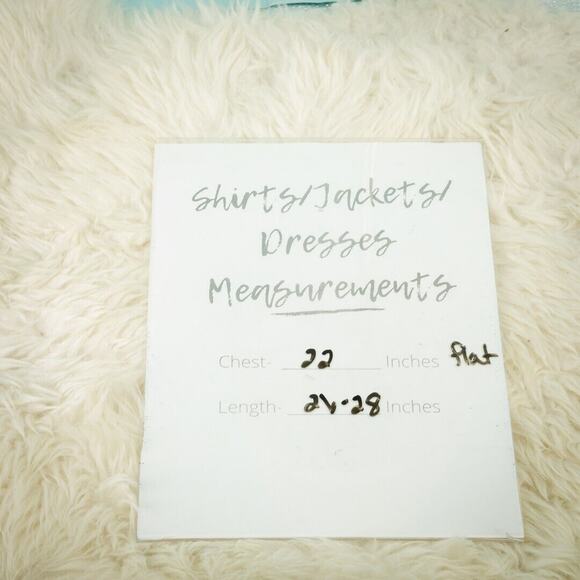 Shirts/Jackets/
Dresses
Measurements
Chest- 22 Inches flat
Length- Inches